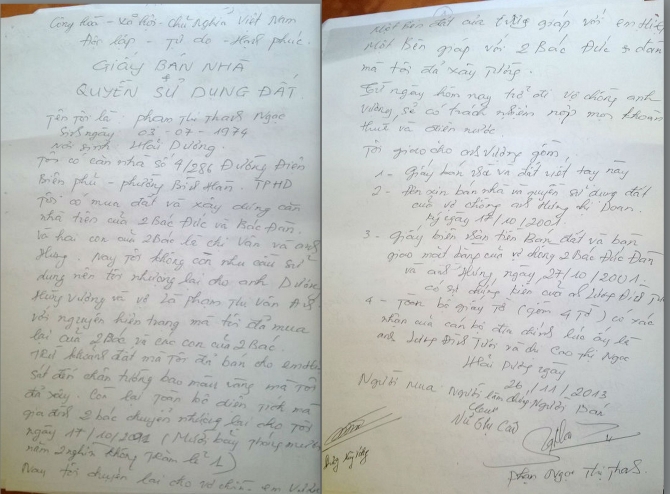 Cộng hòa - Xã Hội - Chủ Nghĩa Việt Nam
Độc lập - Tự do - Hạnh phúc.
GIẤY BÁN NHÀ
+
QUYỀN SỬ DỤNG ĐẤT.
Tên tôi là phạm Thị Thanh Ngọc
Sinh ngày 03-07-1974
Nơi sinh Hải Dương.
Tôi có căn nhà số 4/286 Đường Điện
Biên phủ - phường Bình Hàn. TPHD
Tôi có mua đất và xây dựng căn
nhà trên của 2 Bác Đức và Bác Đan.
và hai con của 2 Bác là chị Vân và anh
Hưng. Nay tôi không còn nhu cầu sử
dụng nên tôi nhượng lại cho anh Dương
Hùng Vương và vợ là phạm thị Vân Anh
với nguyên hiện trạng mà tôi đã mua
lại của 2 Bác và các con của 2 Bác.
Trừ khoảng đất mà tôi đã bán cho em
sát đến chân tường bao màu vàng mà tôi
đã xây. Còn lại toàn bộ diện tích mà
gia đình 2 bác chuyển nhượng lại cho tôi
ngày 17/10/2001 (Mười bảy tháng mười
năm 2 nghìn không trăm lẻ 1)
Nay tôi chuyển lại cho vợ chồng em Vương
Một bên đất của tường giáp với em
Một Bên giáp với 2 Bác Đức Đan
mà tôi đã xây Tường.
Từ ngày hôm nay trở đi vợ chồng anh
Vương sẽ có trách nhiệm nộp mọi khoản
thuế và điện nước
Tôi giao cho anh Vương gồm.
1 - Giấy bán nhà và đất viết tay này
2 - đơn xin bán nhà và quyền sử dụng đất
của vợ chồng anh Hưng chị Doan.
ký ngày 17/10/2001
3 - Giấy biên nhận tiền Bán đất và bàn
giao mặt bằng của vợ chồng 2 Bác Đức Đan
và anh Hưng, ngày 27/10/2001 -
có sự chứng kiến của anh Lương Đình
4 - Toàn bộ giấy tờ (gồm 4 tờ) có xác
nhận của cán bộ địa chính lúc ấy là
anh Lương Đình Tưới và chị Cao Thị Ngọc
Hải Dương ngày
26/11/2013
Người mua Người làm chứng Người Bán
Vũ Thị Cao
Phạm Ngọc Thị Thanh